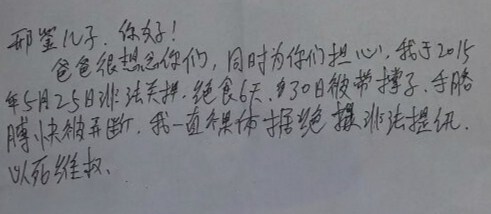 邢鉴儿子，你好！
爸爸很想念你们，同时为你们担心，我于2015
年5月25日非法关押.绝食6天.30日被带撑子.手胳
膊快被弄断.我一直裸体拒绝非法提讯.
以死维权、